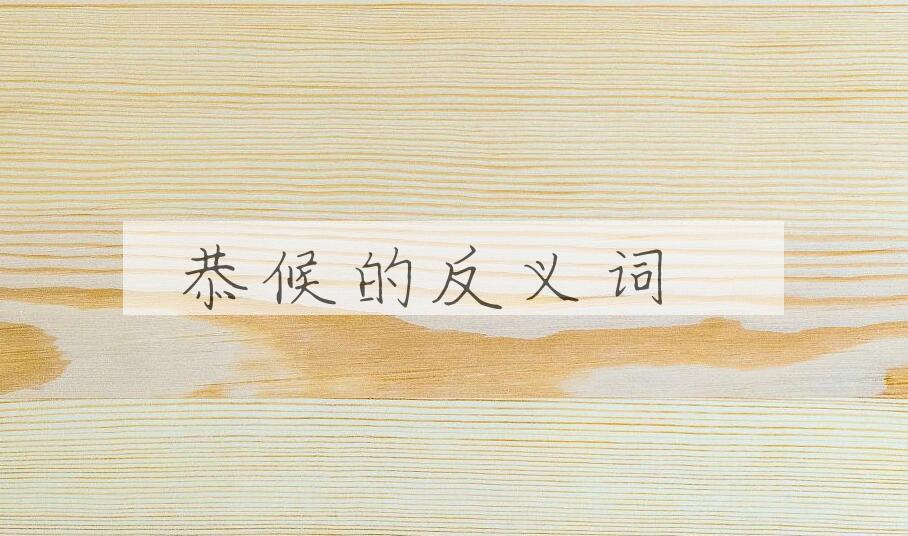 恭候的反义词